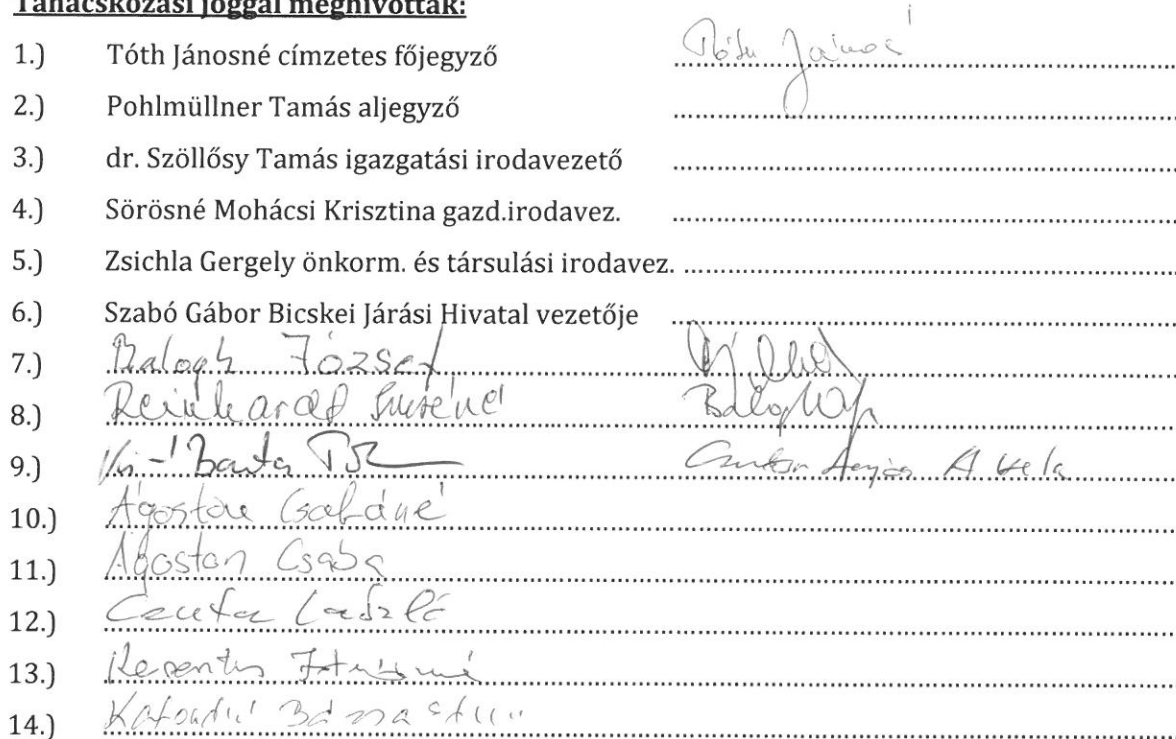 Tanácskozási joggal meghívottak:
1.) Tóth Jánosné címzetes főjegyző Tóth Jánosné
2.) Pohlmüllner Tamás aljegyző
3.) dr. Szöllősy Tamás igazgatási irodavezető
4.) Sörösné Mohácsi Krisztina gazd.irodavez.
5.) Zsichla Gergely önkorm. és társulási irodavez.
6.) Szabó Gábor Bicskei Járási Hivatal vezetője
7.) Balogh József
8.) Reinhardt Balogh
9.) Barta
10.) Ágoston Csabáné
11.) Ágoston Csaba
12.) Czuta László
13.)
14.)